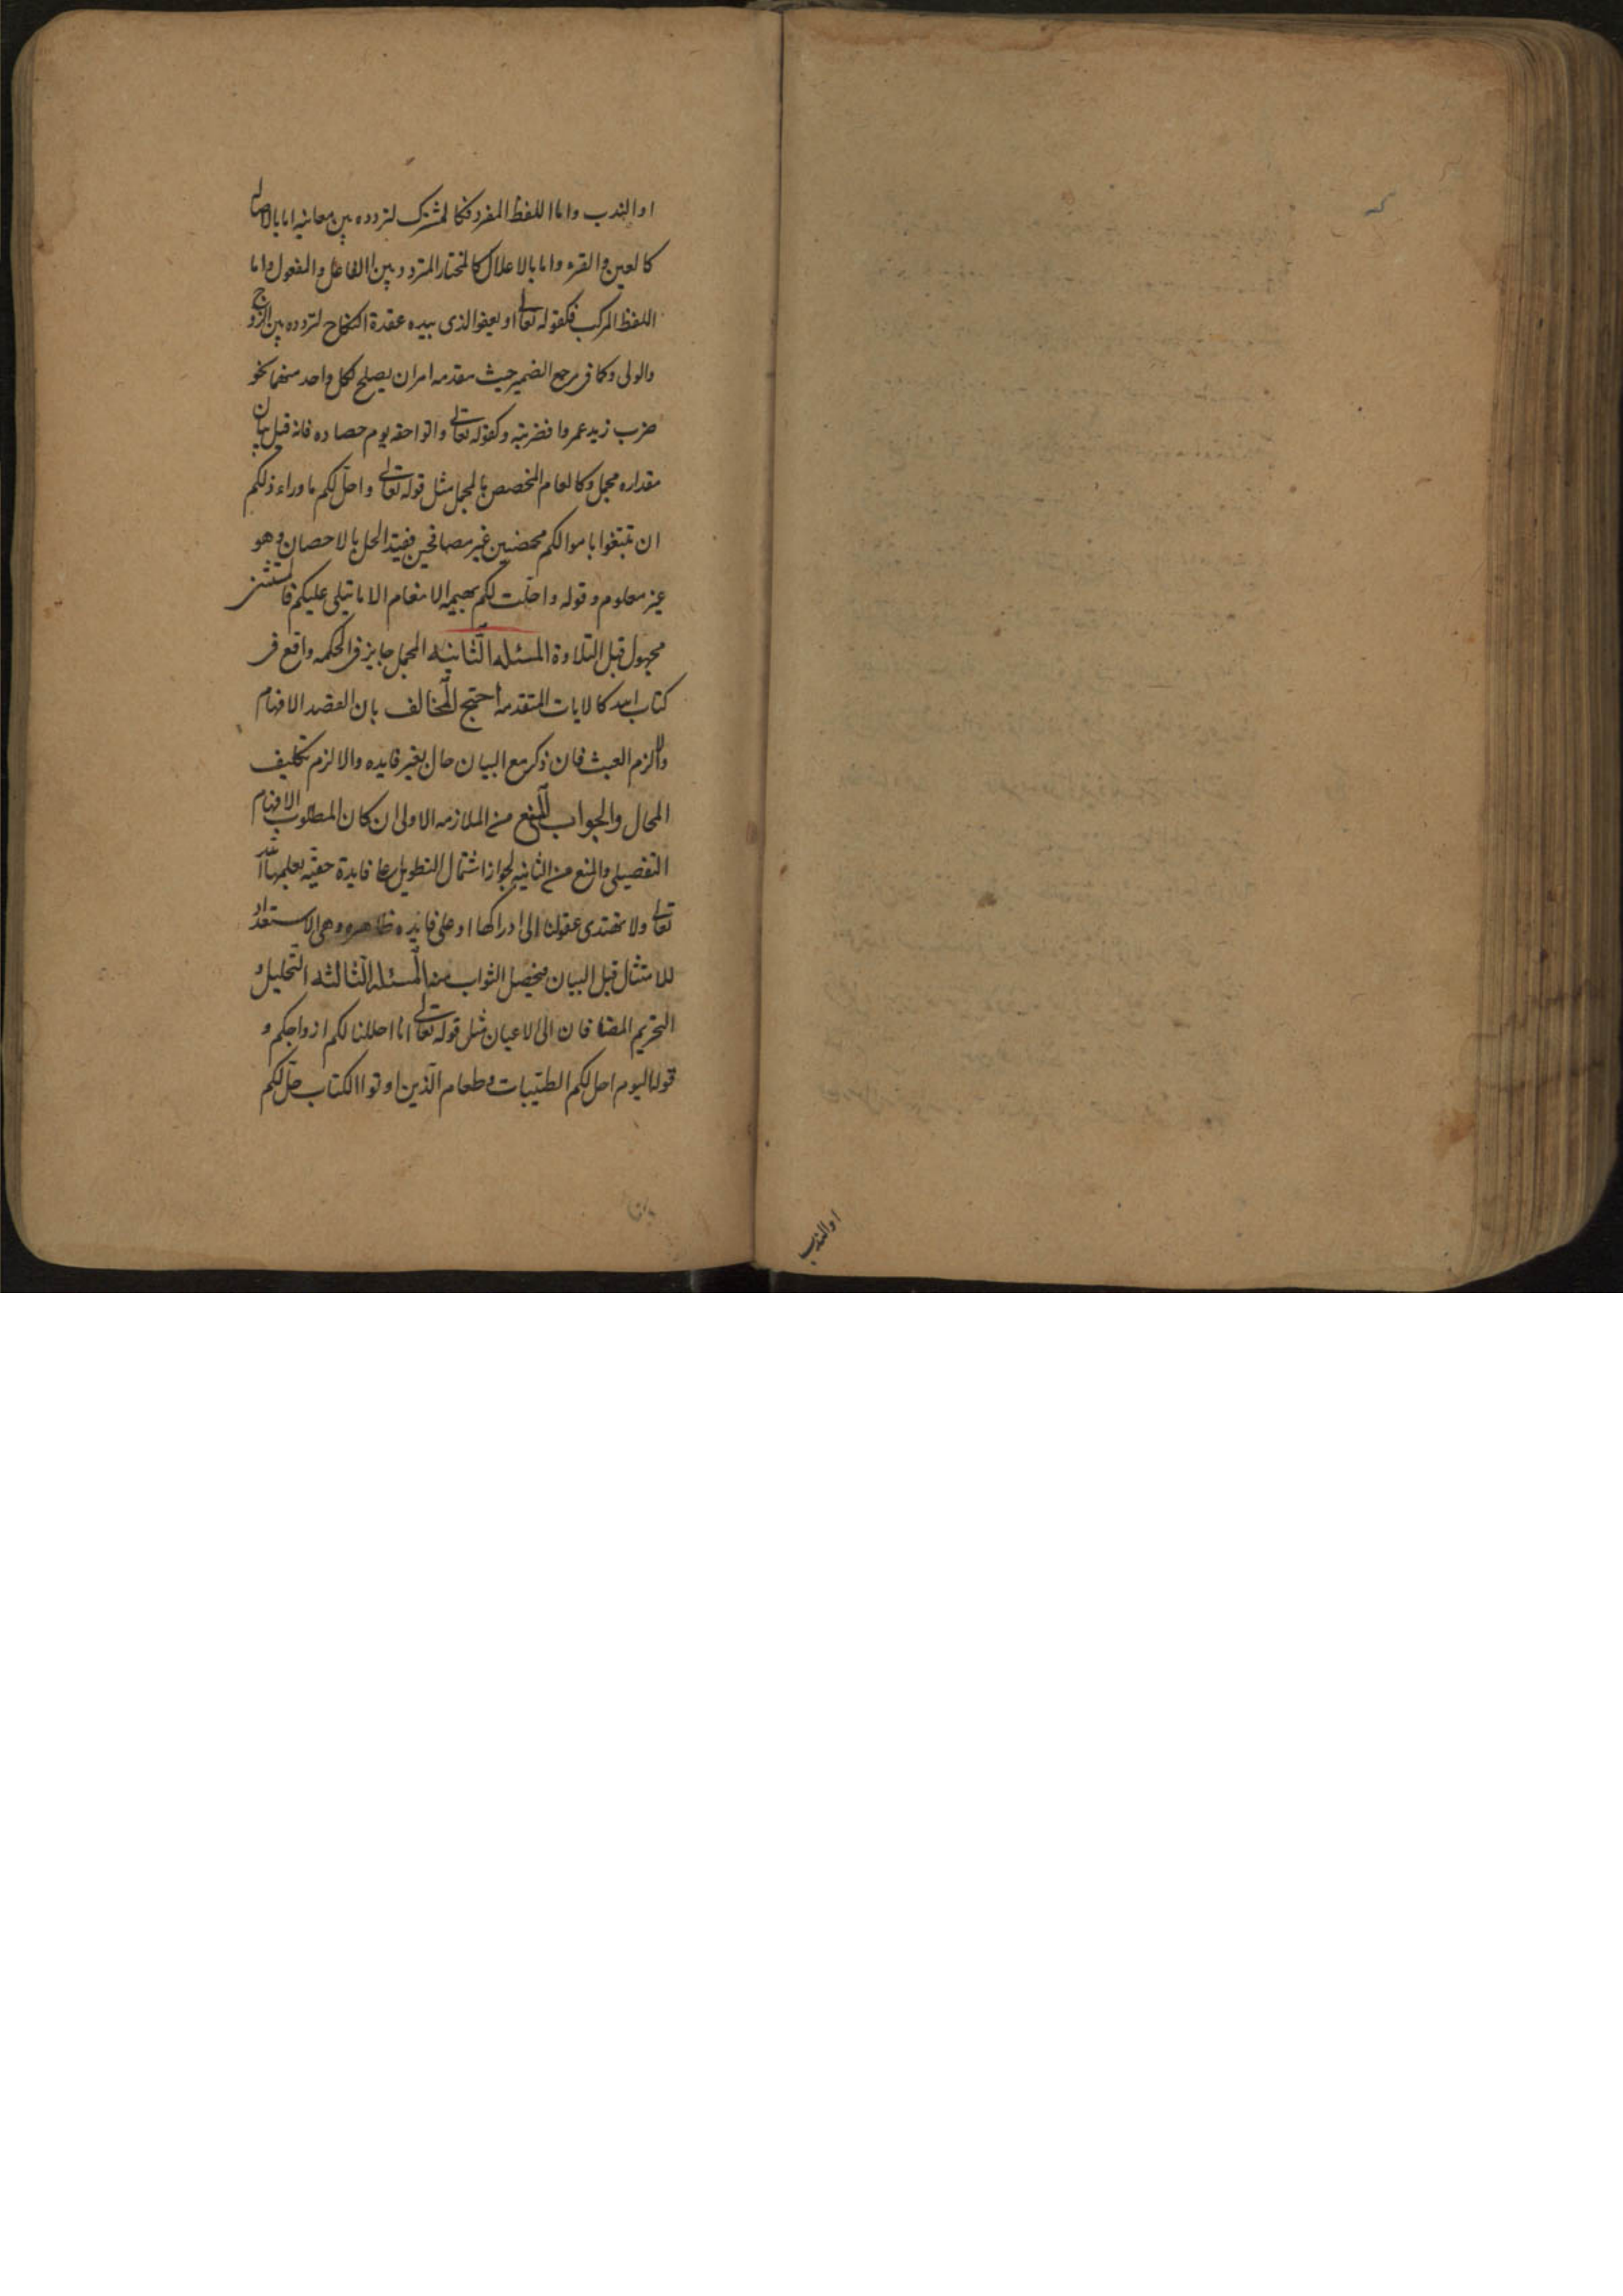 او الندب واما اللفظ المفرد فكالمشترك لتردده بين معانيه اما بالاصاله
كالعين والقرء واما بالاعلال كالمختار المتردد بين الفاعل والمفعول واما
اللفظ المركب فكقوله تعالى او يعفو الذى بيده عقدة النكاح لتردده بين الزوج
والولى وكما فى مرجع الضمير حيث مقدمه امران يصلح لكل واحد منهما نحو
ضرب زيد عمروا فضربته وكقوله تعالى واتوا حقه يوم حصاده فانه قبل بيان
مقداره مجمل وكالعام المخصص بالمجمل مثل قوله تعالى واحل لكم ما وراء ذلكم
ان تبتغوا باموالكم محصنين غير مصافحين فقيد الحل بالاحصان وهو
غير معلوم وقوله واحلت لكم بهيمه الانعام الا ما يتلى عليكم فالمستثنى
مجهول قبل التلاوة المسئله الثانيه المجمل جايز فى الحكمه واقع فى
كتاب الله كالايات المتقدمه احتج المخالف بان القصد الافهام
والا لزم العبث فان ذكر مع البيان طال بغير فايده والا لزم تكليف
المحال والجواب المنع من الملازمه الاولى ان كان المطلوب الافهام
التفصيلى والمنع من الثانيه لجواز اشتمال التطويل على فايدة خفيّه يعلمها الله
تعالى ولا تهتدى عقولنا الى ادراكها او على فايده ظاهره وهى الاستعداد
للامتثال قبل البيان فيحصل الثواب منه المسئله الثالثه التحليل و
التحريم المضافان الى الاعيان مثل قوله تعالى انا احللنا لكم ازواجكم و
قوله اليوم احل لكم الطيّبات وطعام الّذين اوتوا الكتاب حلّ لكم
او الندب